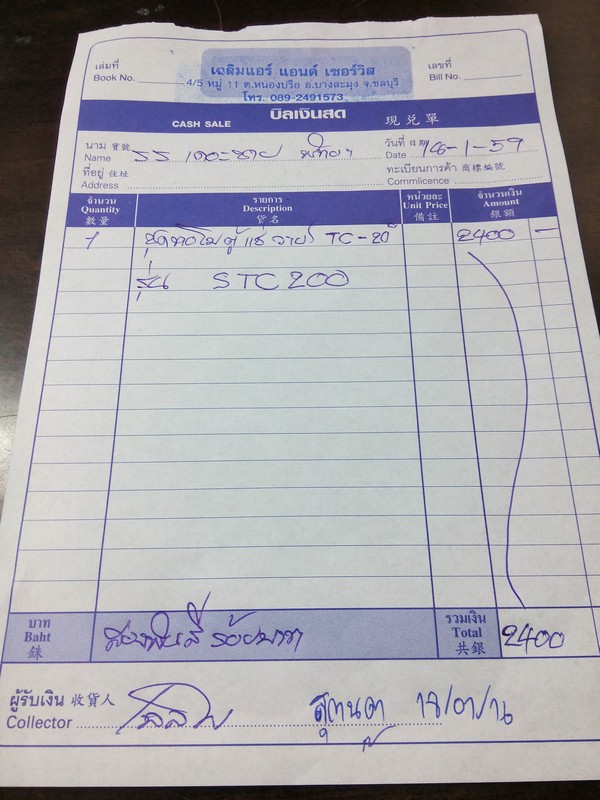 เฉลิมแอร์ แอนด์ เซอร์วิส
4/5 หมู่ 11 ต.หนองปรือ อ.บางละมุง จ.ชลบุรี
โทร. 089-2491573
เล่มที่
Book No.
เลขที่
Bill No.
CASH SALE บิลเงินสด 現兌單
นาม 寶號
Name รร เดอะซาย พัทยา
วันที่ 日期
Date 18-1-59
ที่อยู่ 住址
Address
ทะเบียนการค้า 商標編號
Commlicence
จำนวน Quantity 數量
รายการ Description 貨名
หน่วยละ Unit Price 備註
จำนวนเงิน Amount 銀額
1 TC-20 2400 —
รุ่น STC 200
บาท Baht 銖 สองพันสี่ร้อยบาท
รวมเงิน Total 共銀 2400
ผู้รับเงิน 收貨人
Collector
18/01/16